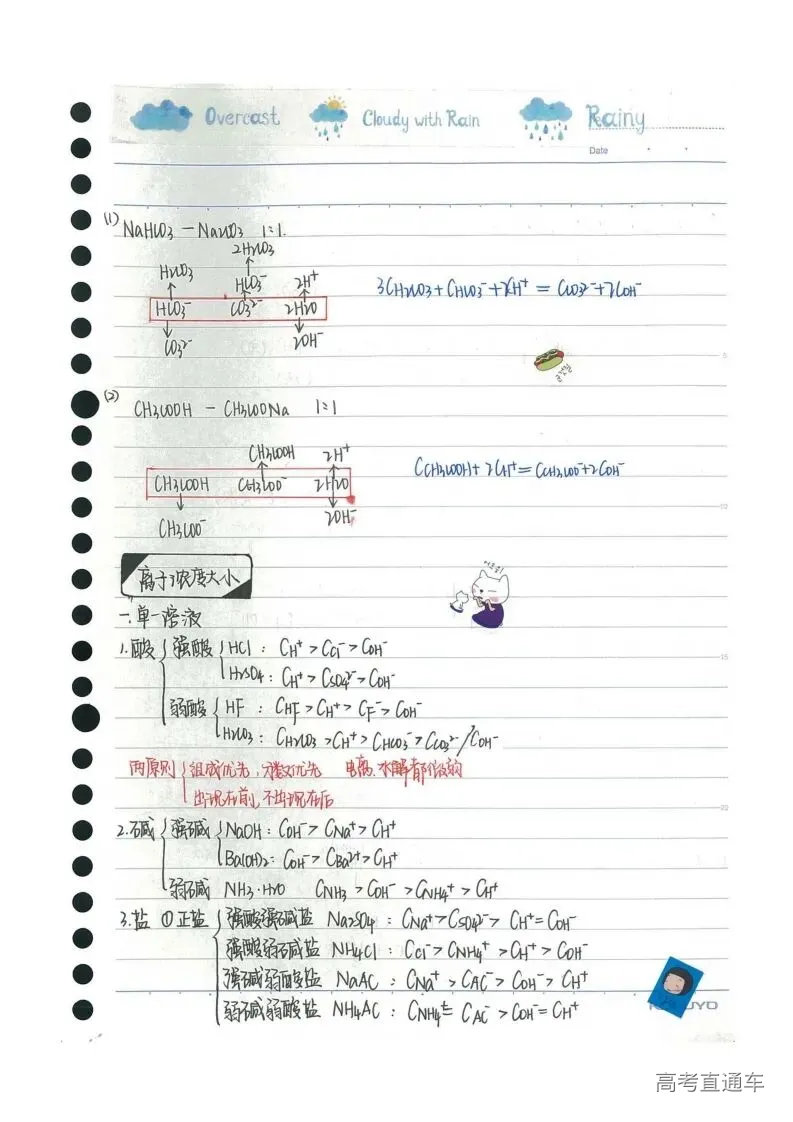 Overcast Cloudy with Rain Rainy
Date
(1) NaHCO3 — Na2CO3 1:1.
2H2CO3
H2CO3 HCO3⁻ 2H⁺
HCO3⁻ CO3²⁻ 2H2O 3CH2CO3+CHCO3⁻+2CH⁺ = CCO3²⁻+2COH⁻
CO3²⁻ 2OH⁻
(2) CH3COOH — CH3COONa 1:1
CH3COOH 2H⁺
CH3COOH CH3COO⁻ 2H2O CCH3COOH+2CH⁺=CCH3COO⁻+2COH⁻
CH3COO⁻ 2OH⁻
离子浓度大小
一.单一溶液
1.酸 强酸 HCl: CH⁺>CCl⁻>COH⁻
H2SO4: CH⁺>CSO4²⁻>COH⁻
弱酸 HF: CHF>CH⁺>CF⁻>COH⁻
H2CO3: CH2CO3>CH⁺>CHCO3⁻>CCO3²⁻/COH⁻
两原则 组成优先,分数优先 电离.水解都很弱的
出现在前,不出现在后
2.碱 强碱 NaOH: COH⁻>CNa⁺>CH⁺
Ba(OH)2: COH⁻>CBa2⁺>CH⁺
弱碱 NH3·H2O CNH3>COH⁻>CNH4⁺>CH⁺
3.盐 ①正盐 强酸强碱盐 Na2SO4: CNa⁺>CSO4²⁻> CH⁺=COH⁻
强酸弱碱盐 NH4Cl: CCl⁻>CNH4⁺>CH⁺>COH⁻
强碱弱酸盐 NaAC: CNa⁺>CAC⁻>COH⁻>CH⁺
弱碱弱酸盐 NH4AC: CNH4⁺=CAC⁻>COH⁻=CH⁺
高考直通车